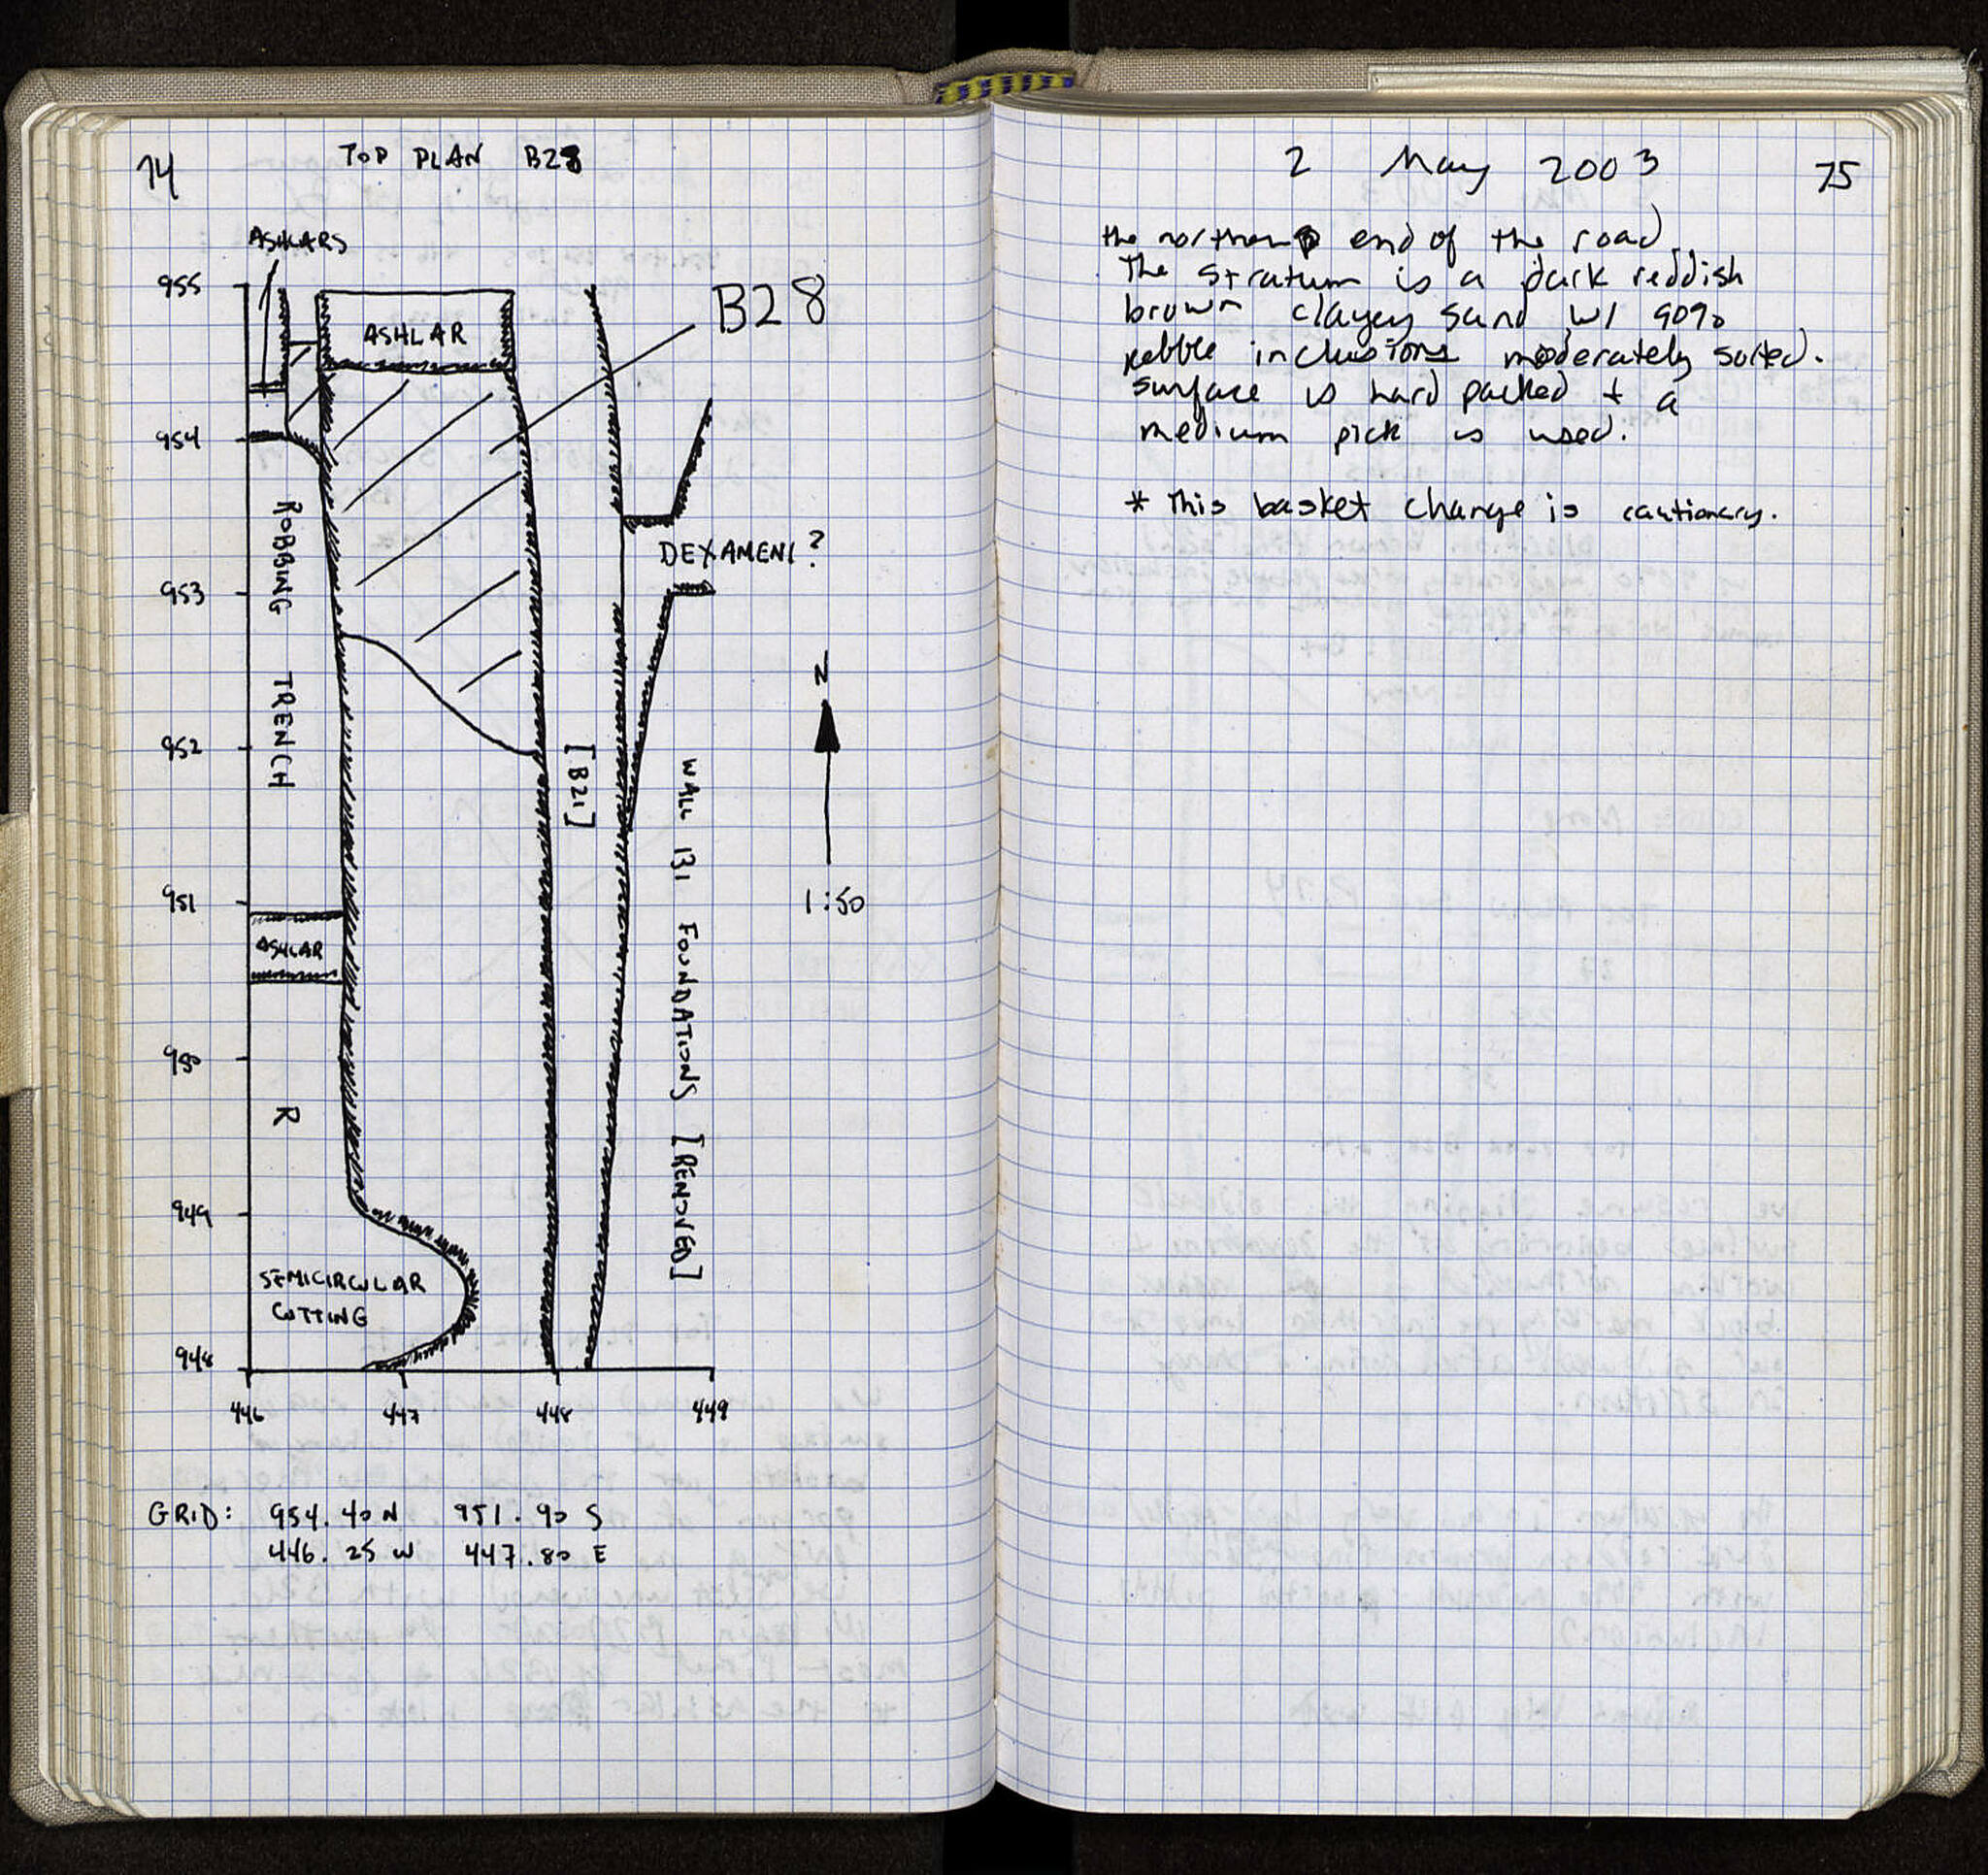 74
TOP PLAN B28
ASHLARS
955
ASHLAR
B28
954
ROBBING TRENCH
DEXAMENI?
953
N
952
[B21]
WALL 131 FOUNDATIONS [REMOVED]
951
1:50
ASHLAR
950
R
949
SEMICIRCULAR
CUTTING
948
446 447 448 449
GRID: 954.40 N 951.90 S
446.25 W 447.80 E
2 May 2003
75
the northern end of the road.
The stratum is a dark reddish
brown clayey sand w/ 90%
pebble inclusions moderately sorted.
surface is hard packed + a
medium pick is used.
* This basket change is cautionary.